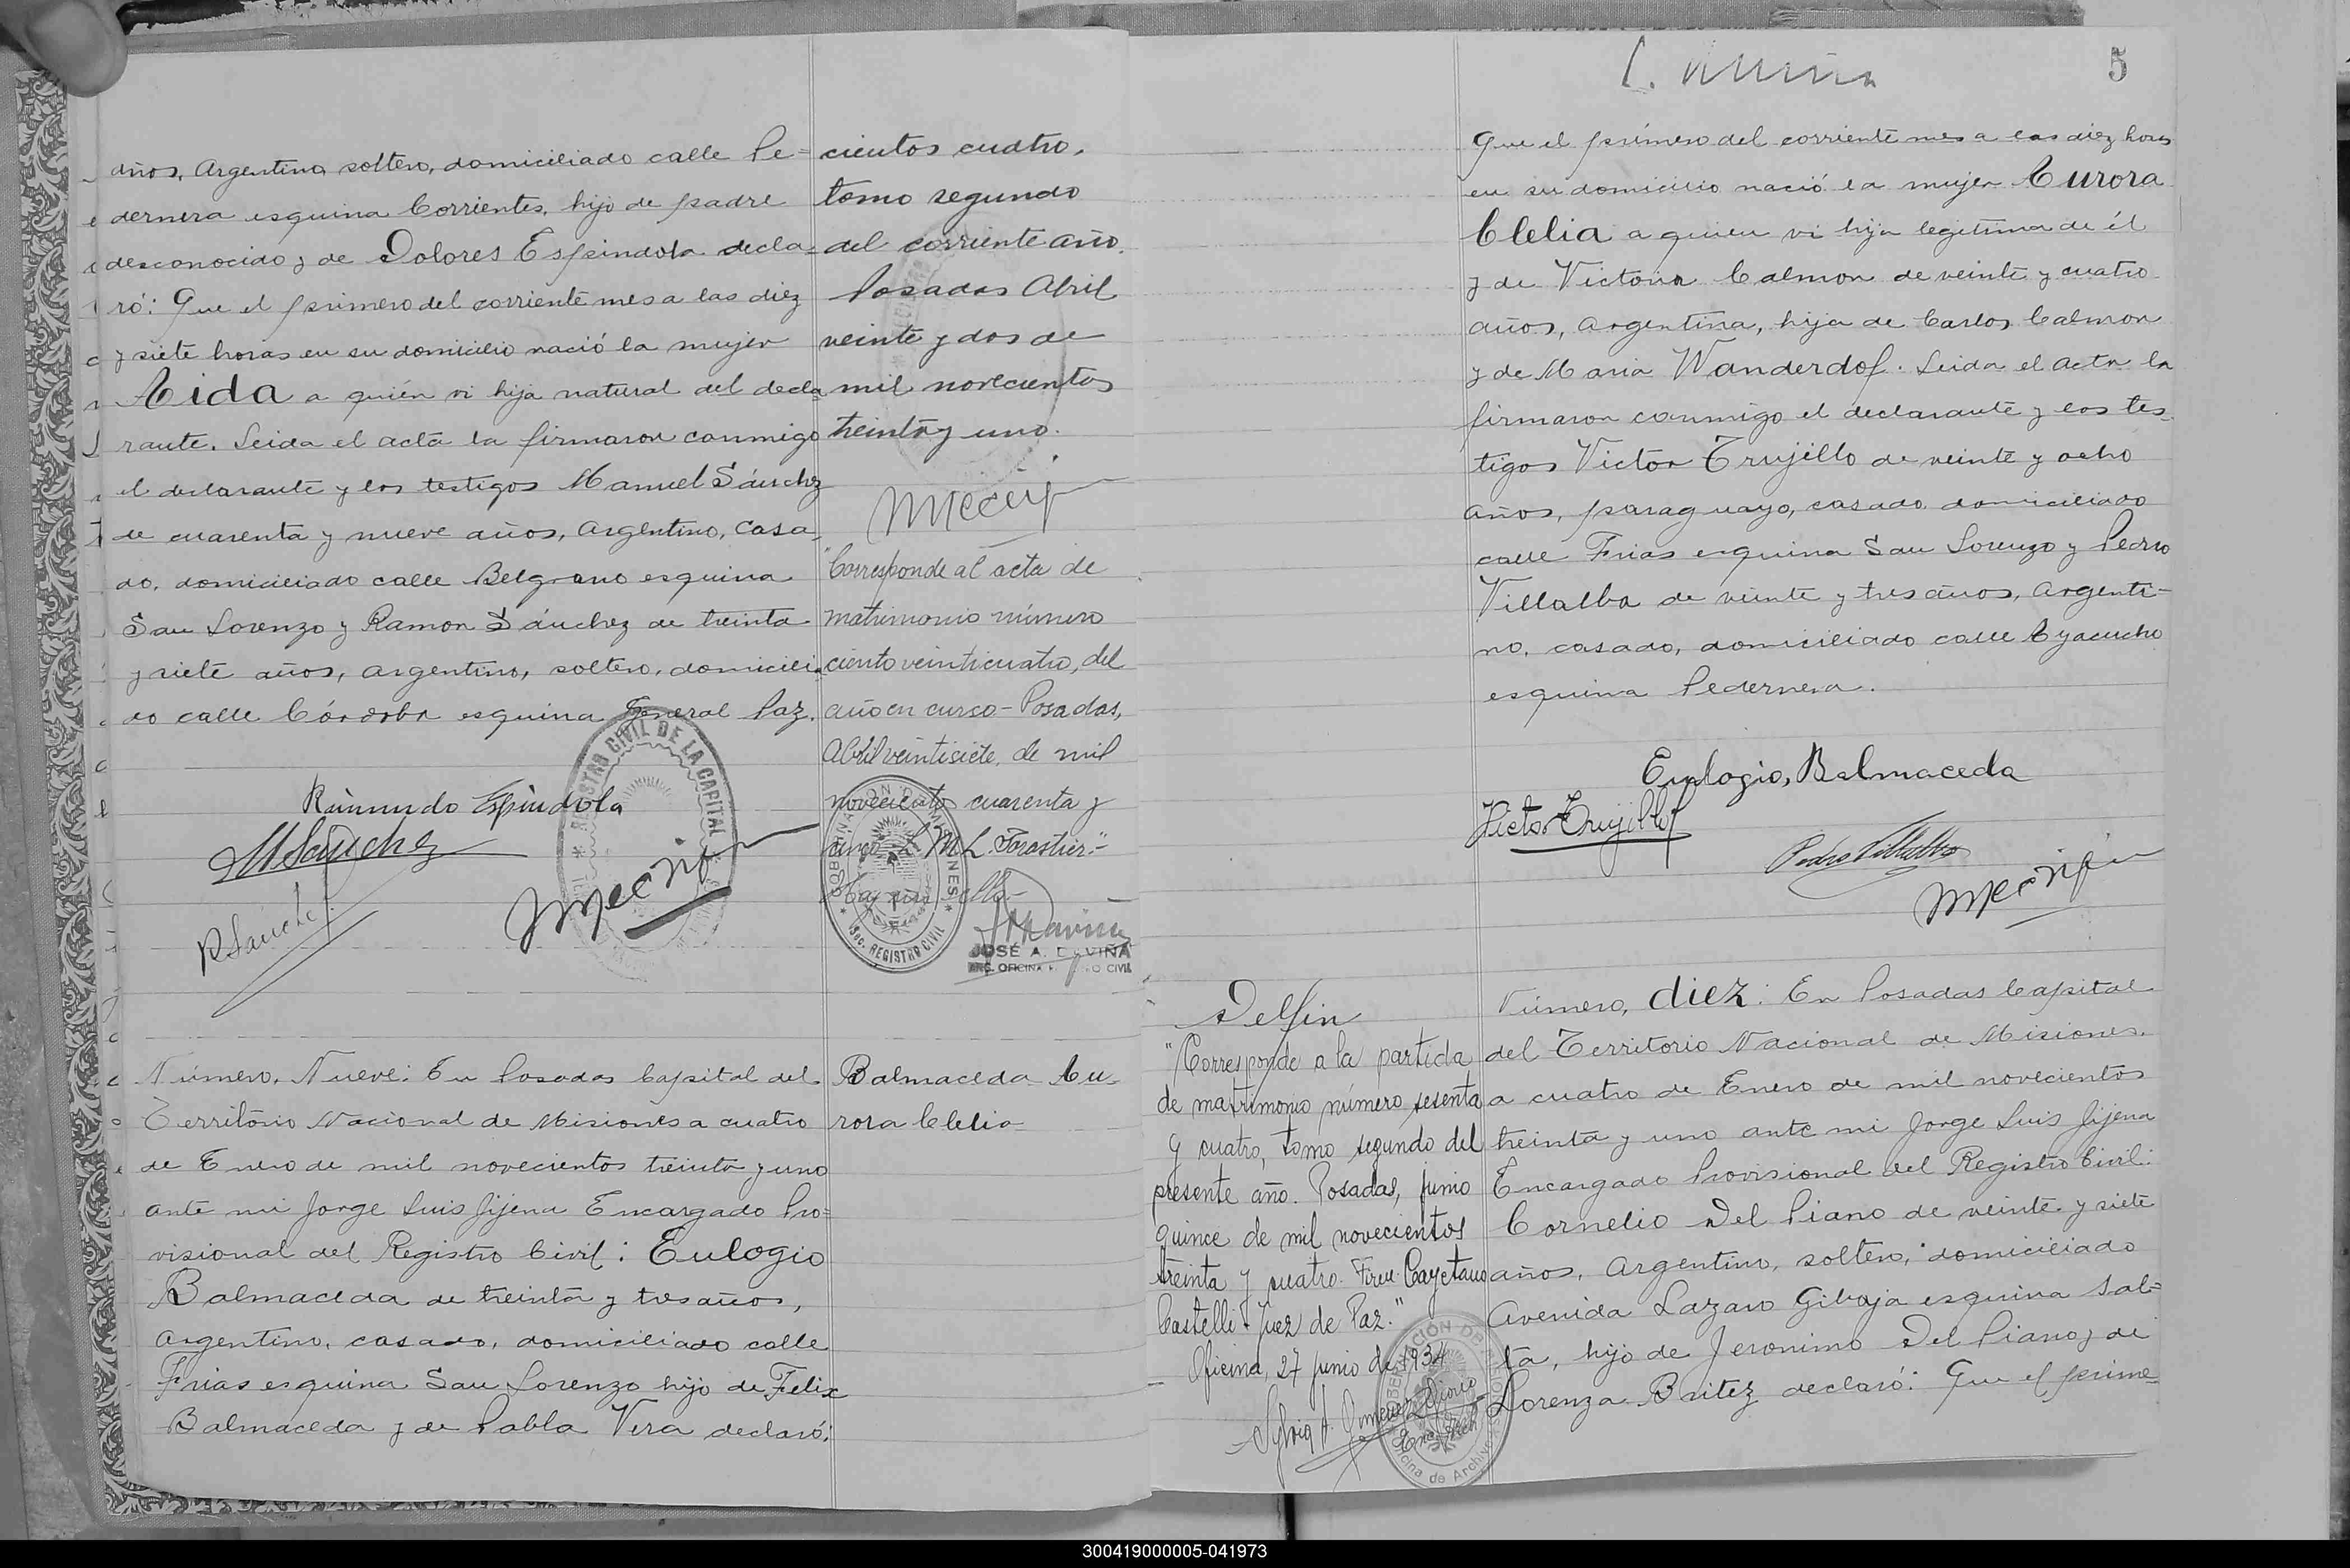 años, Argentino soltero, domiciliado calle Pe=
dernera esquina Corrientes, hijo de padre
desconocido y de Dolores Espindola decla=
ró: Que el primero del corriente mes a las diez
y siete horas en su domicilio nació la mujer
Aida a quién vi hija natural del decla=
rante. Leida el acta la firmaron conmigo
el declarante y los testigos Manuel Sánchez
de cuarenta y nueve años, Argentino, casa=
do, domiciliado calle Belgrano esquina
San Lorenzo y Ramon Sánchez de treinta
y siete años, argentino, soltero, domicilia
do calle Córdoba esquina General Paz.
Raimundo Espindola
MSanchez
R Sanchez
REGISTRO CIVIL DE LA CAPITAL
cientos cuatro,
tomo segundo
del corriente año.
Posadas Abril
veinte y dos de
mil novecientos
treinta y uno.
"Corresponde al acta de
matrimonio número
ciento veinticuatro, del
año en curso - Posadas,
Abril veintisiete, de mil
novecientos cuarenta y
cinco. L. M. L. Forastier."
Hay un sello.-
GOBERNACION DE MISIONES
REGISTRO CIVIL
JOSÉ A. DAVIÑA
ENC. OFICINA REGISTRO CIVIL
Número, Nueve: En Posadas Capital del
Territorio Nacional de Misiones a cuatro
de Enero de mil novecientos treinta y uno
ante mi Jorge Luis Jijena Encargado Pro=
visional del Registro Civil: Eulogio
Balmaceda de treinta y tres años,
argentino, casado, domiciliado calle
Frias esquina San Lorenzo hijo de Felix
Balmaceda y de Pabla Vera declaró:
Balmaceda Au=
rora Clelia
5
Que el primero del corriente mes a las diez horas
en su domicilio nació la mujer Aurora
Clelia a quien vi hija legitima de él
y de Victoria Calmon de veinte y cuatro
años, argentina, hija de Carlos Calmon
y de Maria Wanderdof. Leida el acta la
firmaron conmigo el declarante y los tes=
tigos Victor Trujillo de veinte y ocho
años, paraguayo, casado domiciliado
calle Frias esquina San Lorenzo y Pedro
Villalba de veinte y tres años, argenti=
no, casado, domiciliado calle Ayacucho
esquina Pedernera.
Eulogio, Balmaceda
Victor Trujillo
Pedro Villalba
Delfin
"Corresponde a la partida
de matrimonio número sesenta
y cuatro, tomo segundo del
presente año. Posadas, junio
quince de mil novecientos
treinta y cuatro. Firm. Cayetano
Castelli - Juez de Paz."
Oficina, 27 junio de 1934
Número, diez: En Posadas Capital
del Territorio Nacional de Misiones.
a cuatro de Enero de mil novecientos
treinta y uno ante mi Jorge Luis Jijena
Encargado Provisional del Registro Civil:
Cornelio Del Piano de veinte y siete
años, Argentino, soltero, domiciliado
Avenida Lazaro Gibaja esquina Sal=
ta, hijo de Jeronimo Del Piano y de
Lorenza Britez declaró: Que el prime=
300419000005-041973